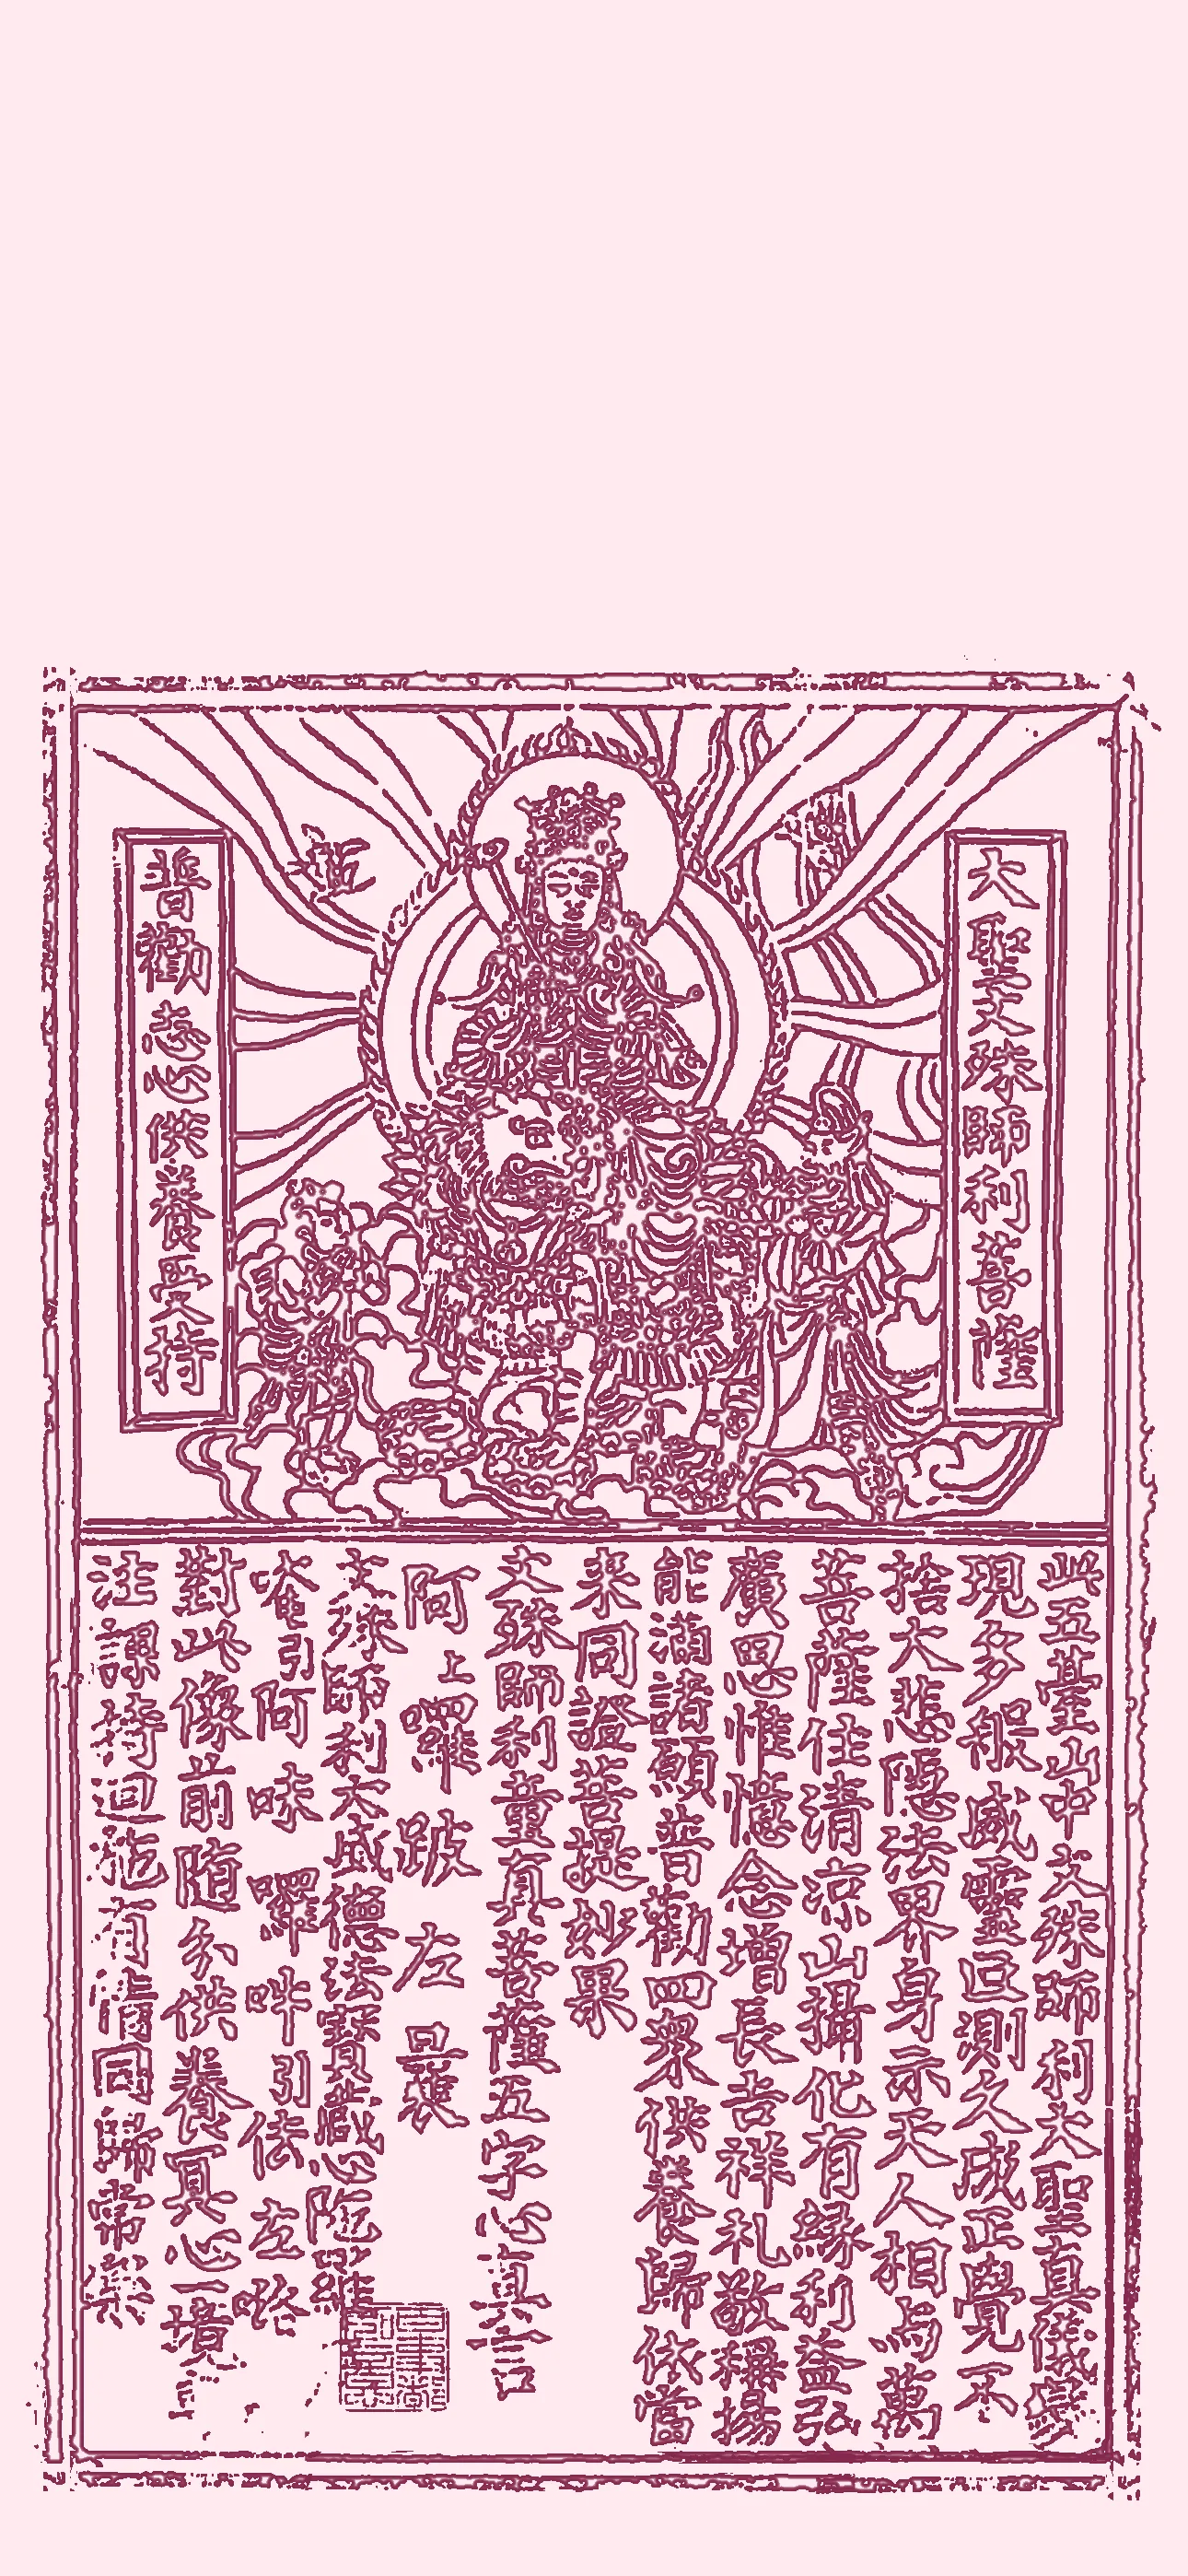 大聖文殊師利菩薩
普勸志心供養受持
此五臺山中文殊師利大聖真儀變
現多般威靈叵測久成正覺不
捨大悲隱法界身示天人相與萬
菩薩住清涼山攝化有緣利益弘
廣思惟憶念增長吉祥礼敬稱揚
能滿諸願普勸四眾供養歸依當
来同證菩提妙果
文殊師利童真菩薩五字心真言
阿上囉跛左曩
文殊師利大威德法寶藏心陁羅
唵引阿味囉吽引佉左咯
對此像前隨分供養冥心一境專
注課持迴施有情同歸常樂